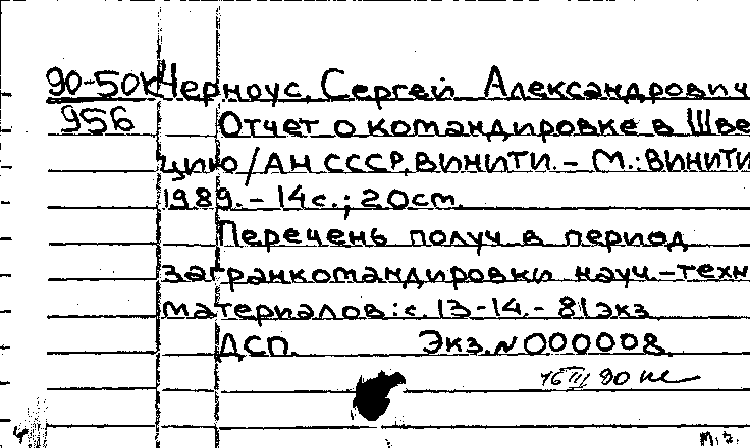 90-50к Черноус, Сергей Александрович
956 Отчет о командировке в Шве
цию / АН СССР, ВИНИТИ. - М.: ВИНИТИ
1989. - 14 с.; 20 см.
Перечень получ в период
загранкомандировки науч.-техн
материалов: с. 13-14. - 81 экз
ДСП. Экз. № 000008
16 III 90